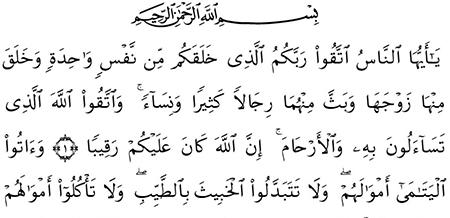 بِسْمِ ٱللَّهِ ٱلرَّحْمَٰنِ ٱلرَّحِيمِ
يَـٰٓأَيُّهَا ٱلنَّاسُ ٱتَّقُوا۟ رَبَّكُمُ ٱلَّذِى خَلَقَكُم مِّن نَّفْسٍ وَٰحِدَةٍ وَخَلَقَ
مِنْهَا زَوْجَهَا وَبَثَّ مِنْهُمَا رِجَالًا كَثِيرًا وَنِسَآءً ۚ وَٱتَّقُوا۟ ٱللَّهَ ٱلَّذِى
تَسَآءَلُونَ بِهِۦ وَٱلْأَرْحَامَ ۚ إِنَّ ٱللَّهَ كَانَ عَلَيْكُمْ رَقِيبًا ﴿١﴾ وَءَاتُوا۟
ٱلْيَتَـٰمَىٰٓ أَمْوَٰلَهُمْ ۖ وَلَا تَتَبَدَّلُوا۟ ٱلْخَبِيثَ بِٱلطَّيِّبِ ۖ وَلَا تَأْكُلُوٓا۟ أَمْوَٰلَهُمْ